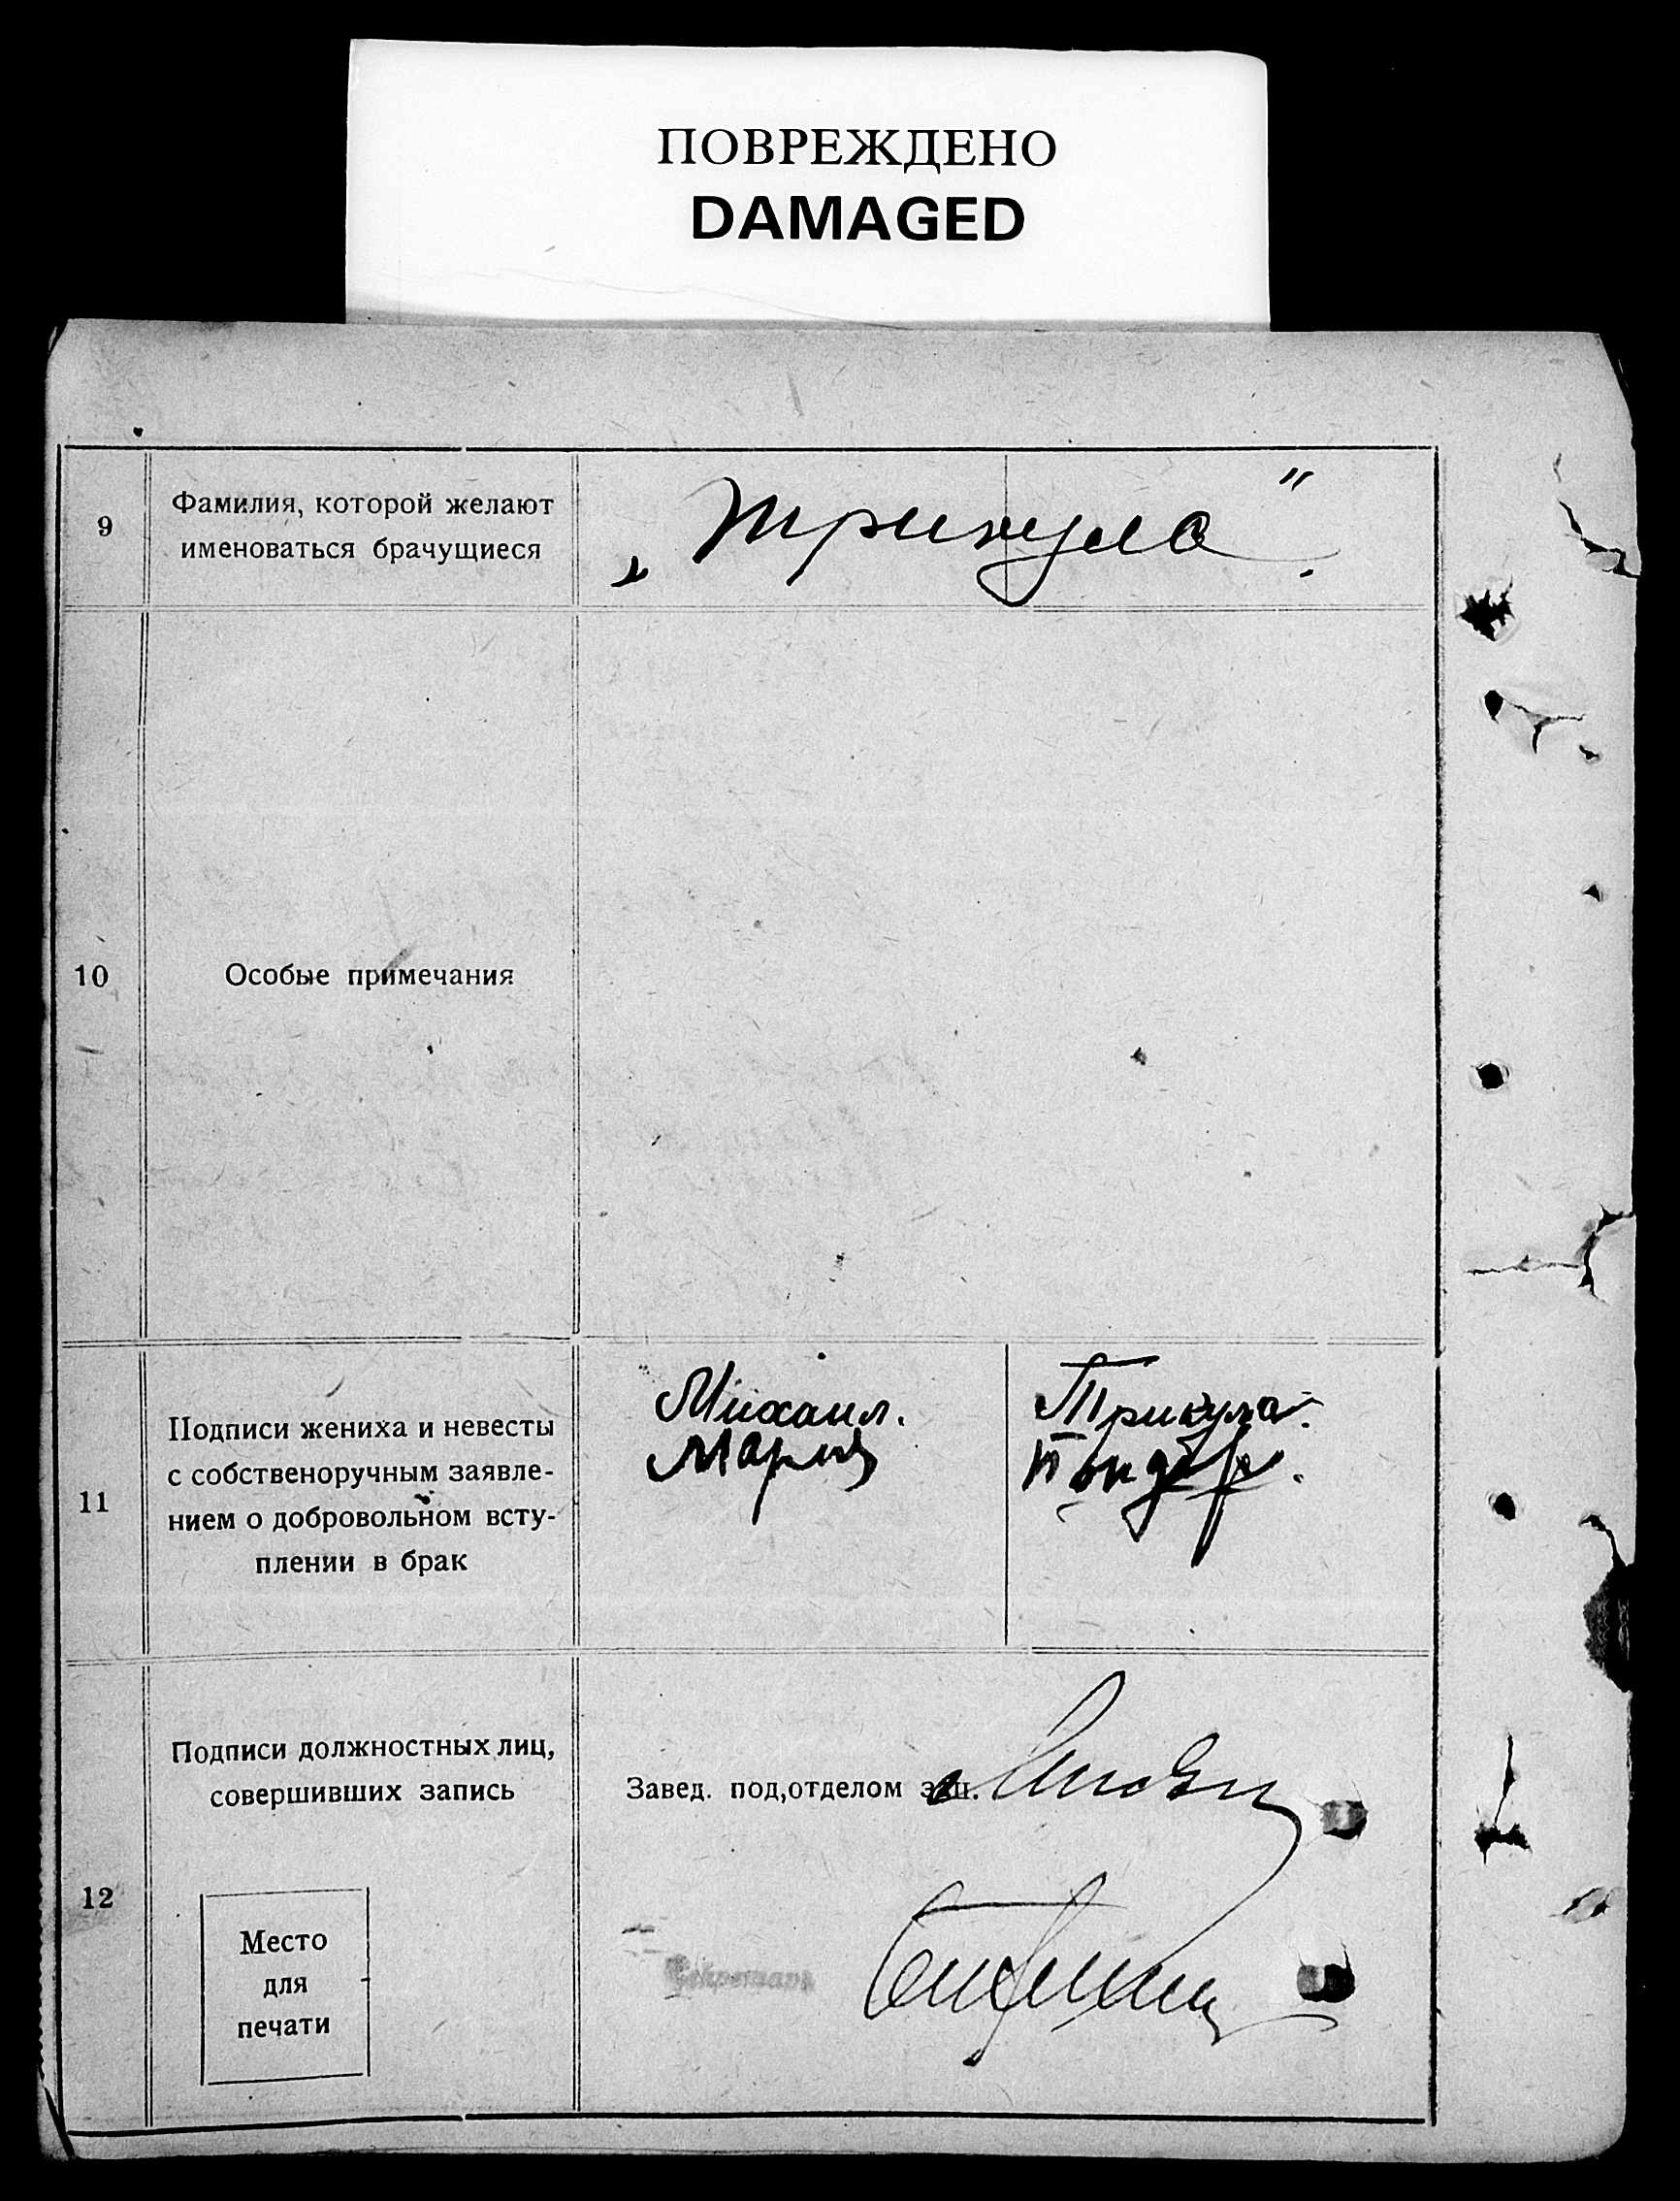 ПОВРЕЖДЕНО
DAMAGED
9
Фамилия, которой желают
именоваться брачущиеся
„Трикула“.
10
Особые примечания
11
Подписи жениха и невесты
с собственоручным заявле-
нием о добровольном всту-
плении в брак
Михаил. Трикула.
Мария
12
Подписи должностных лиц,
совершивших запись
Завед. под,отделом зап.
Секретарь
Место
для
печати